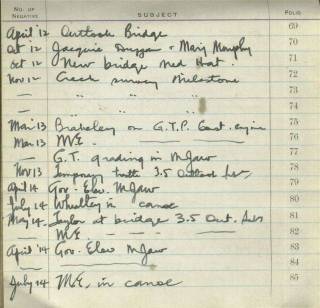 NO. OF NEGATIVE SUBJECT FOLIO
April '12 Outlook Bridge 69
Oct '12 Jacquie Duggan & Mary Murphy 70
Oct '12 New bridge Red Hart. 71
Nov 12 Creek survey Milestone 72
— " " " 73
— " " " 74
Mar 13 Brakeley on G.T.P. East. engine 75
Mar 13 M.E. — 76
— G.T. grading in MJaw 77
Nov 13 Temporary 3.5 Outlook 78
April 14 Gov. Elev. MJaw 79
July 14 Whatley in canoe 80
May 14 Taylor at bridge 3.5 Out. 81
M.E. — 82
April '14 Gov. Elev MJaw 83
— 84
July 14 M.E. in canoe 85